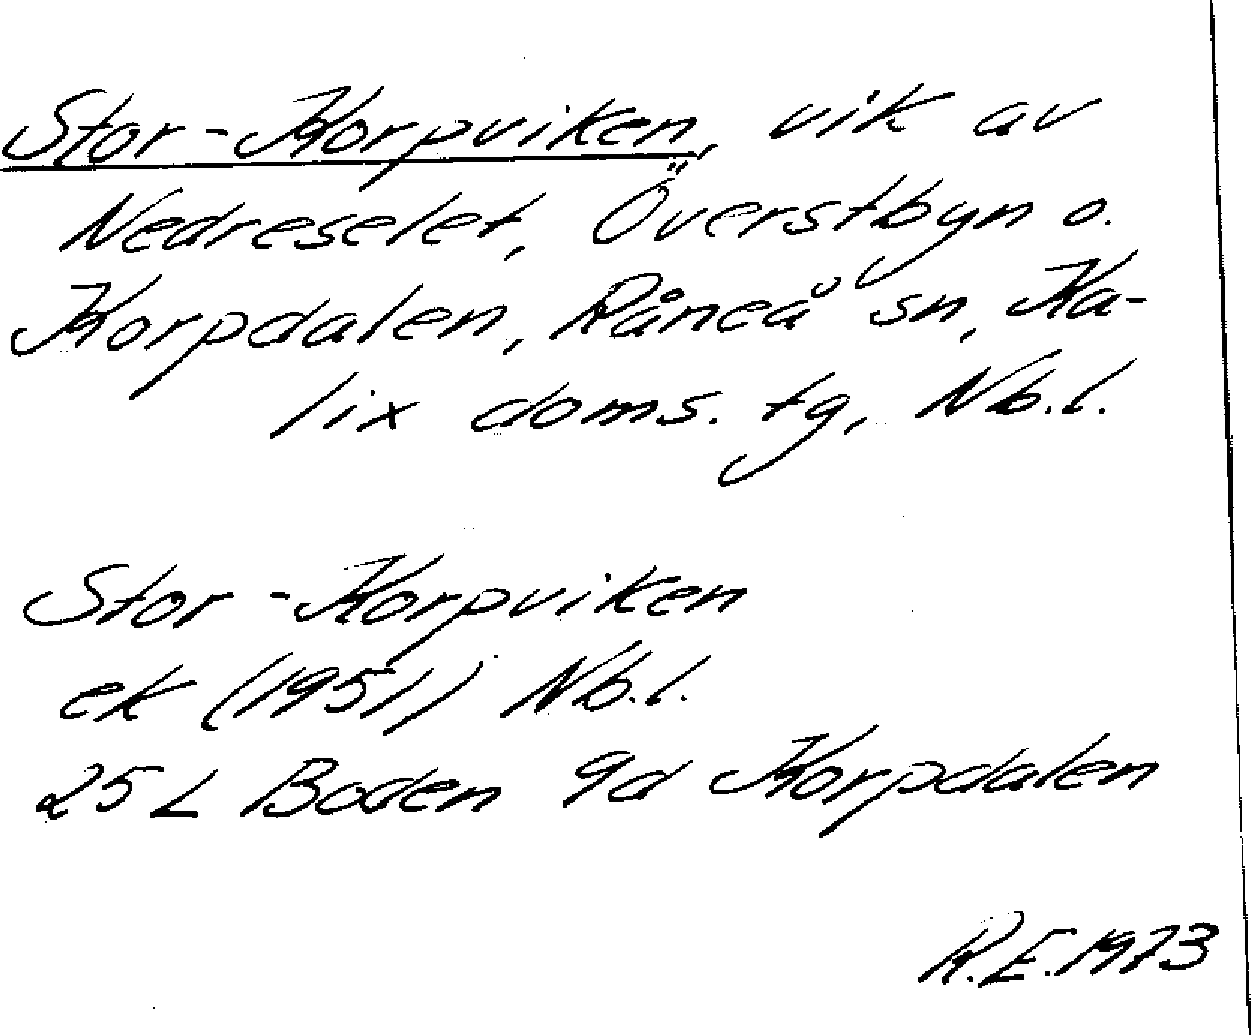 Stor-Korpviken, vik av
Nedreselet, Överstbyn o.
Korpdalen, Råneå sn, Ka-
lix doms. tg, Nb.l.
Stor-Korpviken
ek (1951) Nb.l.
25 L Boden 9d Korpdalen
R.E. 1973